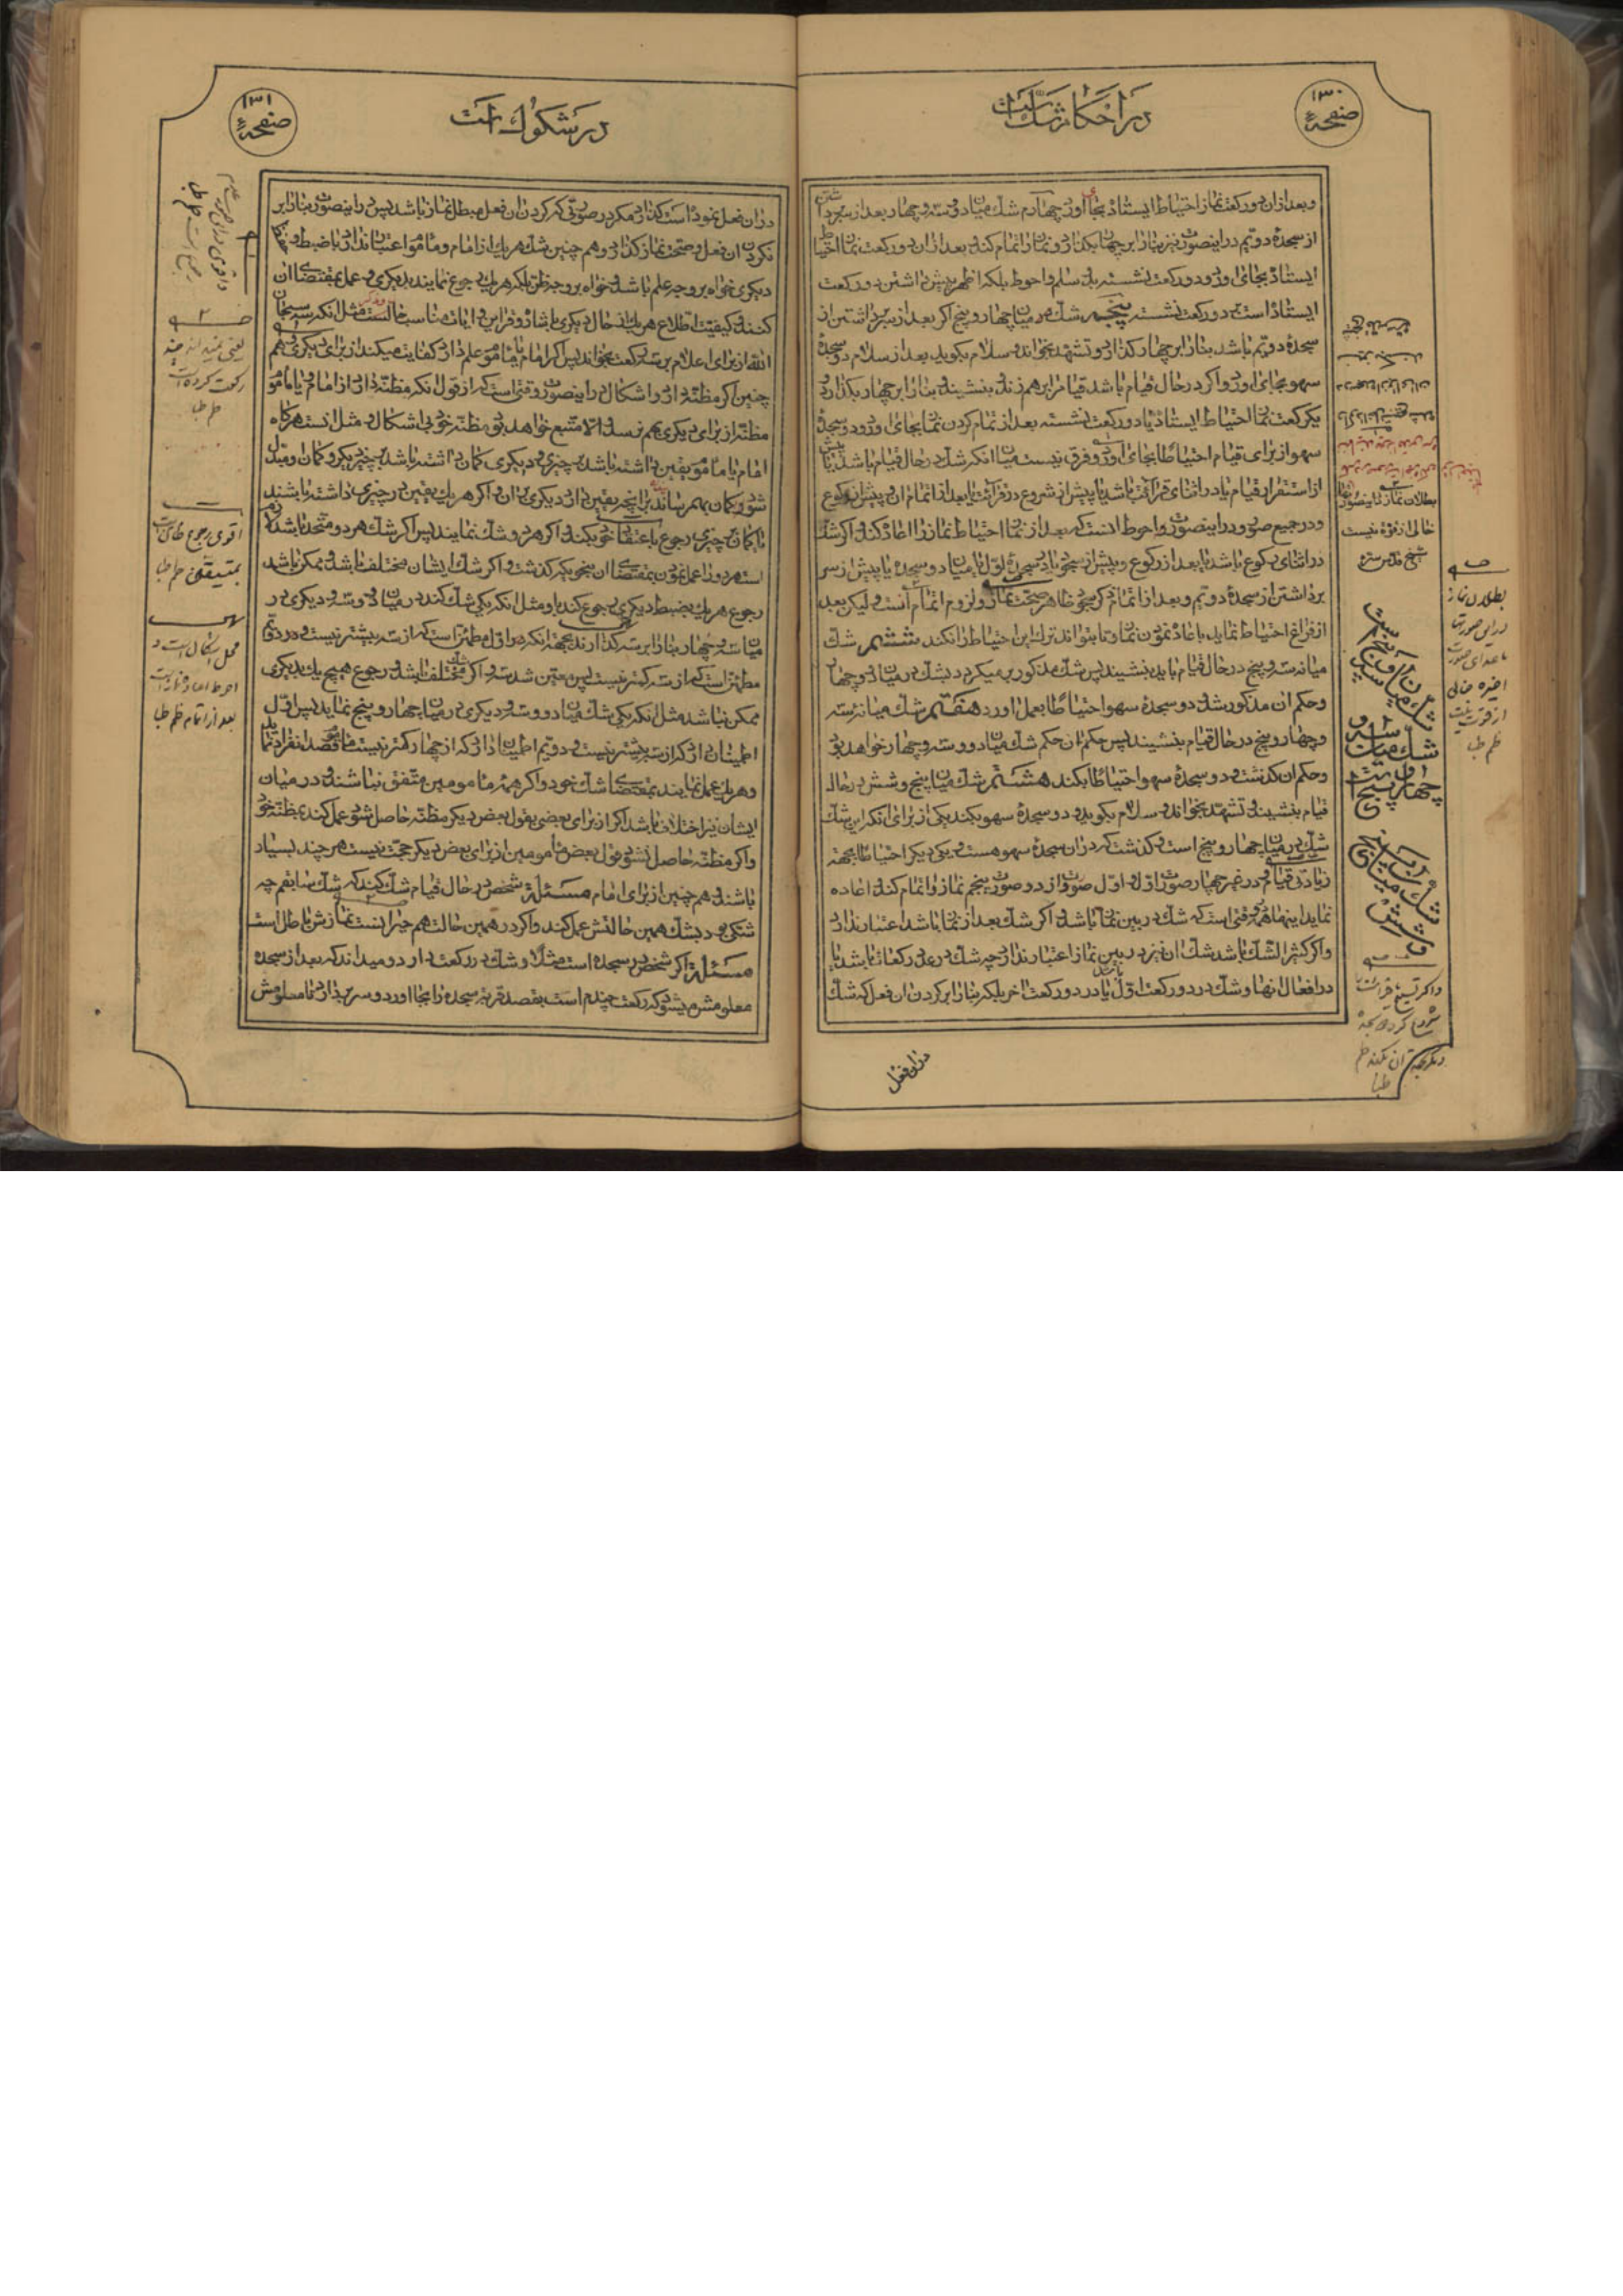 صفحهٔ ۱۳۰
در احکام شک است
و بعد از ان دو رکعت نماز احتیاط ایستاده بجا اورد چهارم شک میان دو و سه و چهار بعد از سر برداشتن
از سجدهٔ دویم در اینصورت نیز بنا را بر چهار بگذارد و نماز را تمام کند و بعد از ان دو رکعت نماز احتیاط
ایستاده بجای اورد و دو رکعت نشسته بیک سلام و احوط بلکه اظهر پیش داشتن دو رکعت
ایستاده است بر دو رکعت نشسته پنجم شک در میان چهار و پنج اگر بعد از سر برداشتن از
سجدهٔ دویم باشد بنا را بر چهار گذارد و تشهد بخواند و سلام بگوید و بعد از سلام دو سجدهٔ
سهو بجای اورد و اگر در حال قیام باشد قیام را بر هم زند و بنشیند و بنا را بر چهار بگذارد و
یک رکعت نماز احتیاط ایستاده یا دو رکعت نشسته بعد از تمام کردن نماز بجای اورد و دو سجدهٔ
سهو از برای قیام احتیاطا بجای اورد و فرق نیست میان انکه شک در حال قیام باشد پیش
از استقرار قیام یا در اثنای قرائت باشد یا پیش از شروع در قرائت یا بعد از تمام ان و پیش از رکوع
و در جمیع صور و در اینصورت احوط انست که بعد از نماز احتیاط نماز را اعاده کند و اگر شک
در اثنای رکوع باشد یا بعد از رکوع و پیش از سجود یا در سجدهٔ اول یا میان دو سجده یا پیش از سر
برداشتن از سجدهٔ دویم و بعد از اتمام ذکر سجود ظاهر صحت نماز و لزوم اتمام آنست و لیکن بعد
از فراغ احتیاط نماید باعاده نمودن نماز و تا بتواند ترک این احتیاط را نکند ششم شک
میان سه و پنج در حال قیام باید بنشیند پس شک مذکور بر میگردد بشک در میان دو و چهار
و حکم ان مذکور شد و دو سجدهٔ سهو احتیاطا بعمل اورد هفتم شک میان سه
و چهار و پنج در حال قیام بنشیند پس حکم ان حکم شک میان دو و سه و چهار خواهد بود
و حکم ان گذشت و دو سجدهٔ سهو احتیاطا بکند هشتم شک میان پنج و شش در حال
قیام بنشیند و تشهد بخواند و سلام بگوید و دو سجدهٔ سهو بکند یکی از برای انکه این شک
شک در میان چهار و پنج است و گذشت که در ان سجدهٔ سهو هست و یکی دیگر احتیاطا بجهة
زیادتی قیام و در غیر چهار صورت اول و اول صورت از دو صورت پنجم نماز را تمام کند و اعاده
نماید اینها همه وقتی است که شک در بین نماز باشد و اگر شک بعد از نماز باشد اعتبار ندارد
و اگر کثیر الشک باشد شک ان نیز در بین نماز اعتبار ندارد چه شک در عدد رکعات باشد یا
در افعال انها و شک در دو رکعت اول یا در دو رکعت اخر بلکه بنا را بر کردن ان فعل که شک
در ان فعل
بطلان نماز در اینصورت
خالی از قوة نیست
شیخ قدس سره
شک میان سه و پنج است
شک میان سه و چهار و پنج است
شک میان پنج و شش
بطلان نماز
در این صورت
اخیره خالی
از قوت نیست
ظم طبا
صفحهٔ ۱۳۱
در شکوک است
در ان فعل نموده است گذارد مگر در صورتی که کردن ان فعل مبطل نماز باشد پس در اینصورت بنا را بر
نکردن ان فعل و صحت نماز گذارد و هم چنین شک هر یک از امام و ماموم اعتبار ندارد با ضبط و حفظ
دیگری خواه بر وجه علم باشد و خواه بر وجه ظن بلکه هر یک رجوع نمایند بدیگری و عمل بمقتضای ان
کنند و کیفیت اطلاع هر یک از حال دیگری باشاره و قران و ایات مناسب حالست مثل انکه سه سبحان
الله از برای اعلام بر سه رکعت بخواند پس اگر امام یا ماموم علم دارد کفایت میکند از برای دیگری و هم
چنین اگر مظنه دارد و اشکال در اینصورت وقتی است که از قول انکه مظنه دارد از امام و یا ماموم
مظنه از برای دیگری بهم نرسد و الا متبع خواهد بود مظنه خود بی اشکال و مثل انست هر گاه
امام یا ماموم یقین داشته باشد بر چیزی و دیگری گمان داشته باشد بر چیز دیگر و گمان او مبدل
شود و گمان بهم رساند بر انچه یقین دارد دیگری بر ان و اگر هر یک یقین در چیزی داشته باشند
یا گمان چیزی رجوع باعتقاد خود بکند و اگر هر دو شک نمایند پس اگر شک هر دو متحد باشد لازم
است هر دو را عمل نمودن بمقتضای ان بنحوی که گذشت و اگر شک ایشان مختلف باشد و ممکن باشد
رجوع هر یک بضبط دیگری رجوع کند باو مثل انکه یکی شک کند در میان دو و سه و دیگری در
میان سه و چهار بنا را بر سه گذارند بجهة انکه در اول مطمئن است که از سه بیشتر نیست و در دویم
مطمئن است که از سه کمتر نیست پس متعین شد سه و اگر شک مختلف باشد و رجوع هیچ یک بدیگری
ممکن نباشد مثل انکه یکی شک میان دو و سه و دیگری در میان چهار و پنج نماید پس اول
اطمینان دارد که از سه بیشتر نیست و دویم اطمینان دارد که از چهار کمتر نیست ماموم قصد انفراد نماید
و هر یک عمل نمایند بمقتضای شک خود و اگر همه مامومین متفق نباشند و در میان
ایشان نیز اختلاف باشد اگر از برای بعضی بقول بعض دیگر مظنه حاصل شود عمل کند بمظنه خود
و اگر مظنه حاصل نشود قول بعض مامومین از برای بعض دیگر حجت نیست هر چند بسیار
باشند و هم چنین از برای امام مسئلة شخص در حال قیام شک کند که شک سابقم چه
شکی بود بشک همین حالتش عمل کند و اگر در همین حالت هم حیرانست نمازش باطل است
مسئلة اگر شخص در سجده است مثلا و شک در رکعت دارد و میداند که بعد از سجده
معلومش میشود که رکعت چندم است بقصد قربة سجده را بجا اورد و سر بردارد تا معلومش
یعنی نمیداند چند
رکعت کرده است
ظم طبا
اقوی رجوع ظان است
بمتیقن ظم طبا
محل اشکال است و
احوط اعاده نماز است
بعد از اتمام ظم طبا